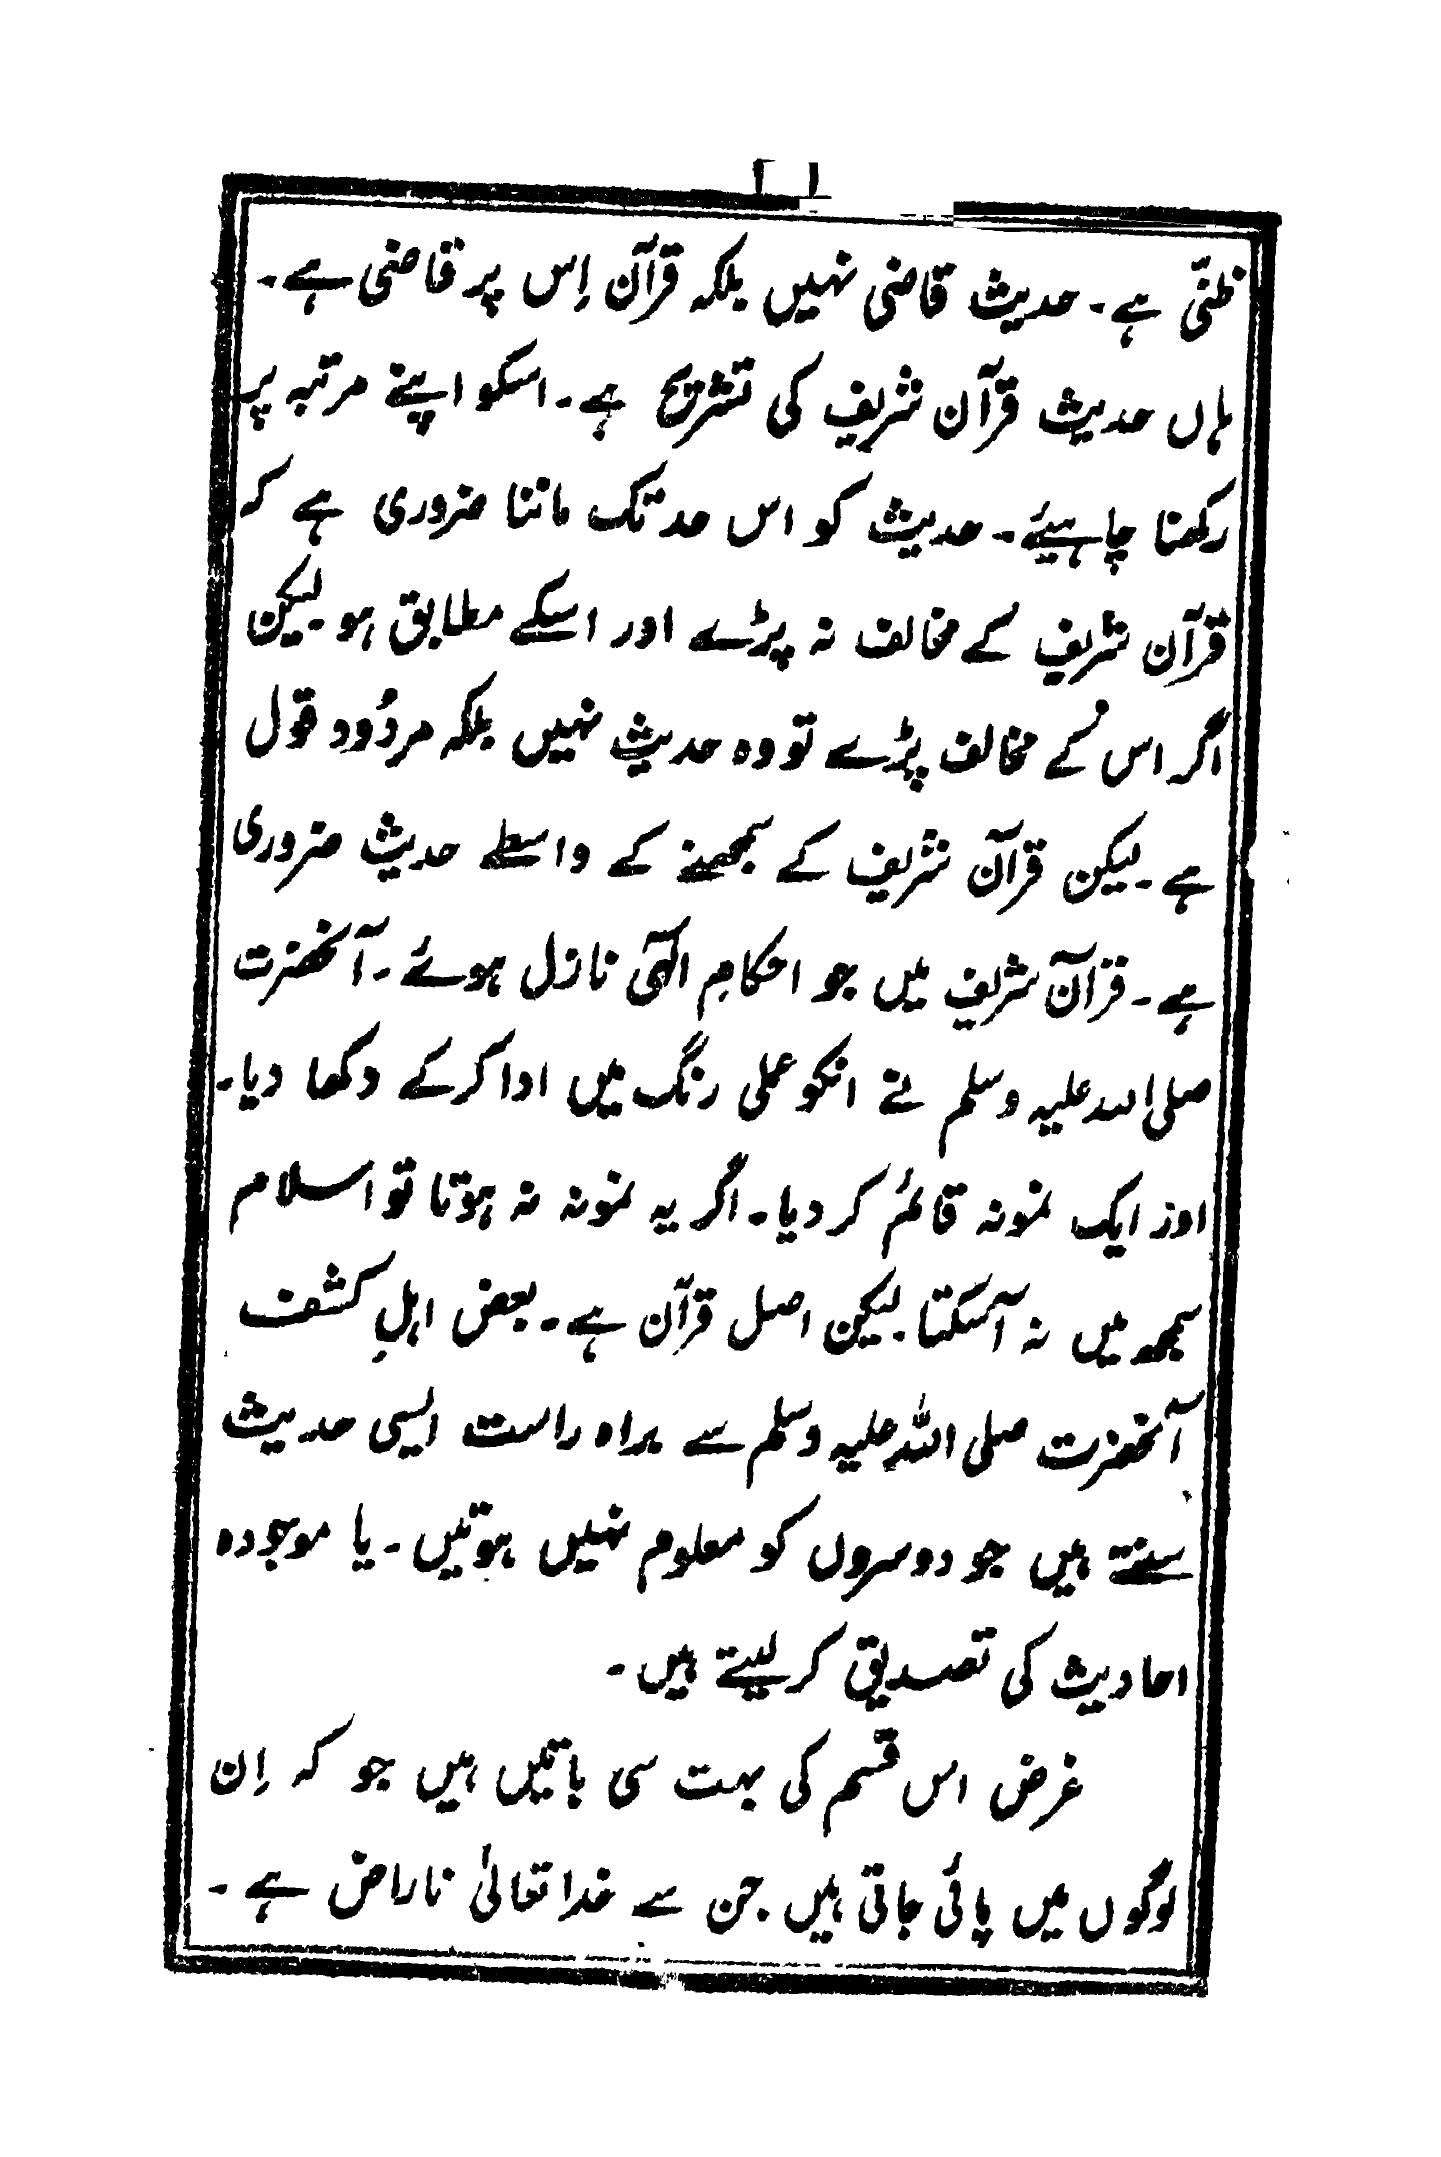 ۲۱
ظنّی ہے۔ حدیث قاضی نہیں بلکہ قرآن اِس پر قاضی ہے۔
ہاں حدیث قرآن شریف کی تشریح ہے۔ اسکو اپنے مرتبہ پر
رکھنا چاہیئے۔ حدیث کو اس حد تک ماننا ضروری ہے کہ
قرآن شریف کے مخالف نہ پڑے اور اسکے مطابق ہو۔ لیکن
اگر اس کے مخالف پڑے تو وہ حدیث نہیں بلکہ مردُود قول
ہے۔ لیکن قرآن شریف کے سمجھنے کے واسطے حدیث ضروری
ہے۔ قرآن شریف میں جو احکامِ الٰہی نازل ہوئے۔ آنحضرت
صلی اللہ علیہ وسلم نے انکو عملی رنگ میں ادا کر کے دکھا دیا۔
اور ایک نمونہ قائم کر دیا۔ اگر یہ نمونہ نہ ہوتا تو اسلام
سمجھ میں نہ آسکتا۔ لیکن اصل قرآن ہے۔ بعض اہلِ کشف
آنحضرت صلی اللہ علیہ وسلم سے براہ راست ایسی حدیث
سنتے ہیں جو دوسروں کو معلوم نہیں ہوتیں۔ یا موجودہ
احادیث کی تصدیق کر لیتے ہیں۔
غرض اس قسم کی بہت سی باتیں ہیں جو کہ اِن
لوگوں میں پائی جاتی ہیں۔ جن سے خدا تعالیٰ ناراض ہے۔